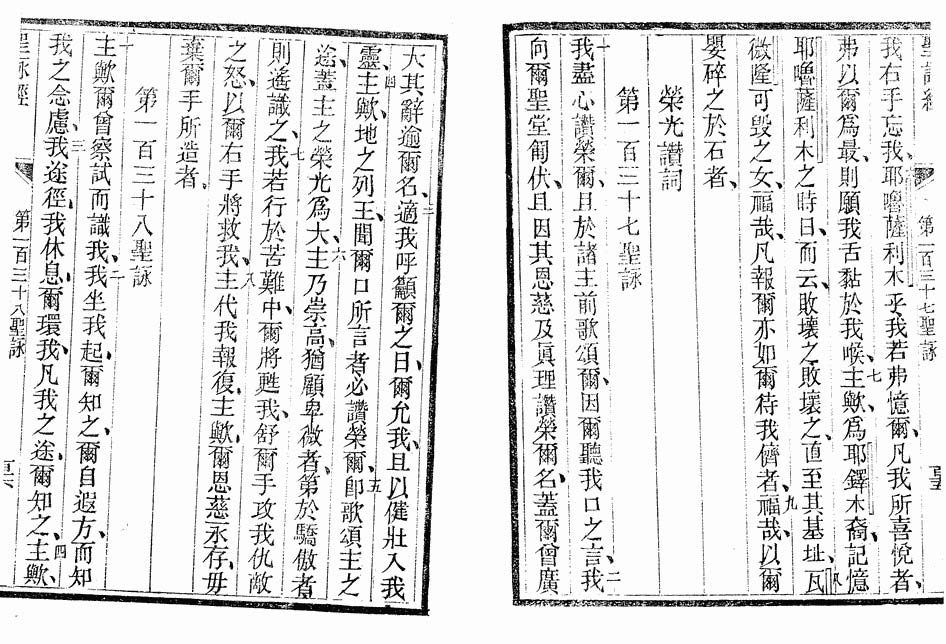 聖詠經
第一百三十七聖詠
我右手忘我、耶嚕薩利木乎、我若弗憶爾、凡我所喜悅者、
弗以爾爲最、則願我舌黏於我喉、七主歟、爲耶鐸木裔、記憶
耶嚕薩利木之時日、而云、敗壞之、敗壞之、直至其基址、八瓦
微隆可毀之女、福哉、凡報爾亦如爾待我儕者、九福哉、以爾
嬰碎之於石者、
榮光讚詞
第一百三十七聖詠
一我盡心讚榮爾、且於諸主前歌頌爾、因爾聽我口之言、二我
向爾聖堂匍伏、且因其恩慈及眞理、讚榮爾名、蓋爾曾廣
大其辭逾爾名、三適我呼籲爾之日、爾允我、且以健壯入我
靈、四主歟、地之列王、聞爾口所言者、必讚榮爾、五卽歌頌主之
途、蓋主之榮光爲大、六主乃崇高、猶顧卑微者、第於驕傲者
則遙識之、七我若行於苦難中、爾將甦我、舒爾手攻我仇敵
之怒、以爾右手將救我、八主代我報復、主歟、爾恩慈永存、毋
棄爾手所造者、
第一百三十八聖詠
一主歟、爾曾察試而識我、二我坐我起、爾知之、爾自遐方、而知
我之念慮、三我途徑、我休息、爾環我、凡我之途、爾知之、四主歟、
聖詠經
第一百三十八聖詠